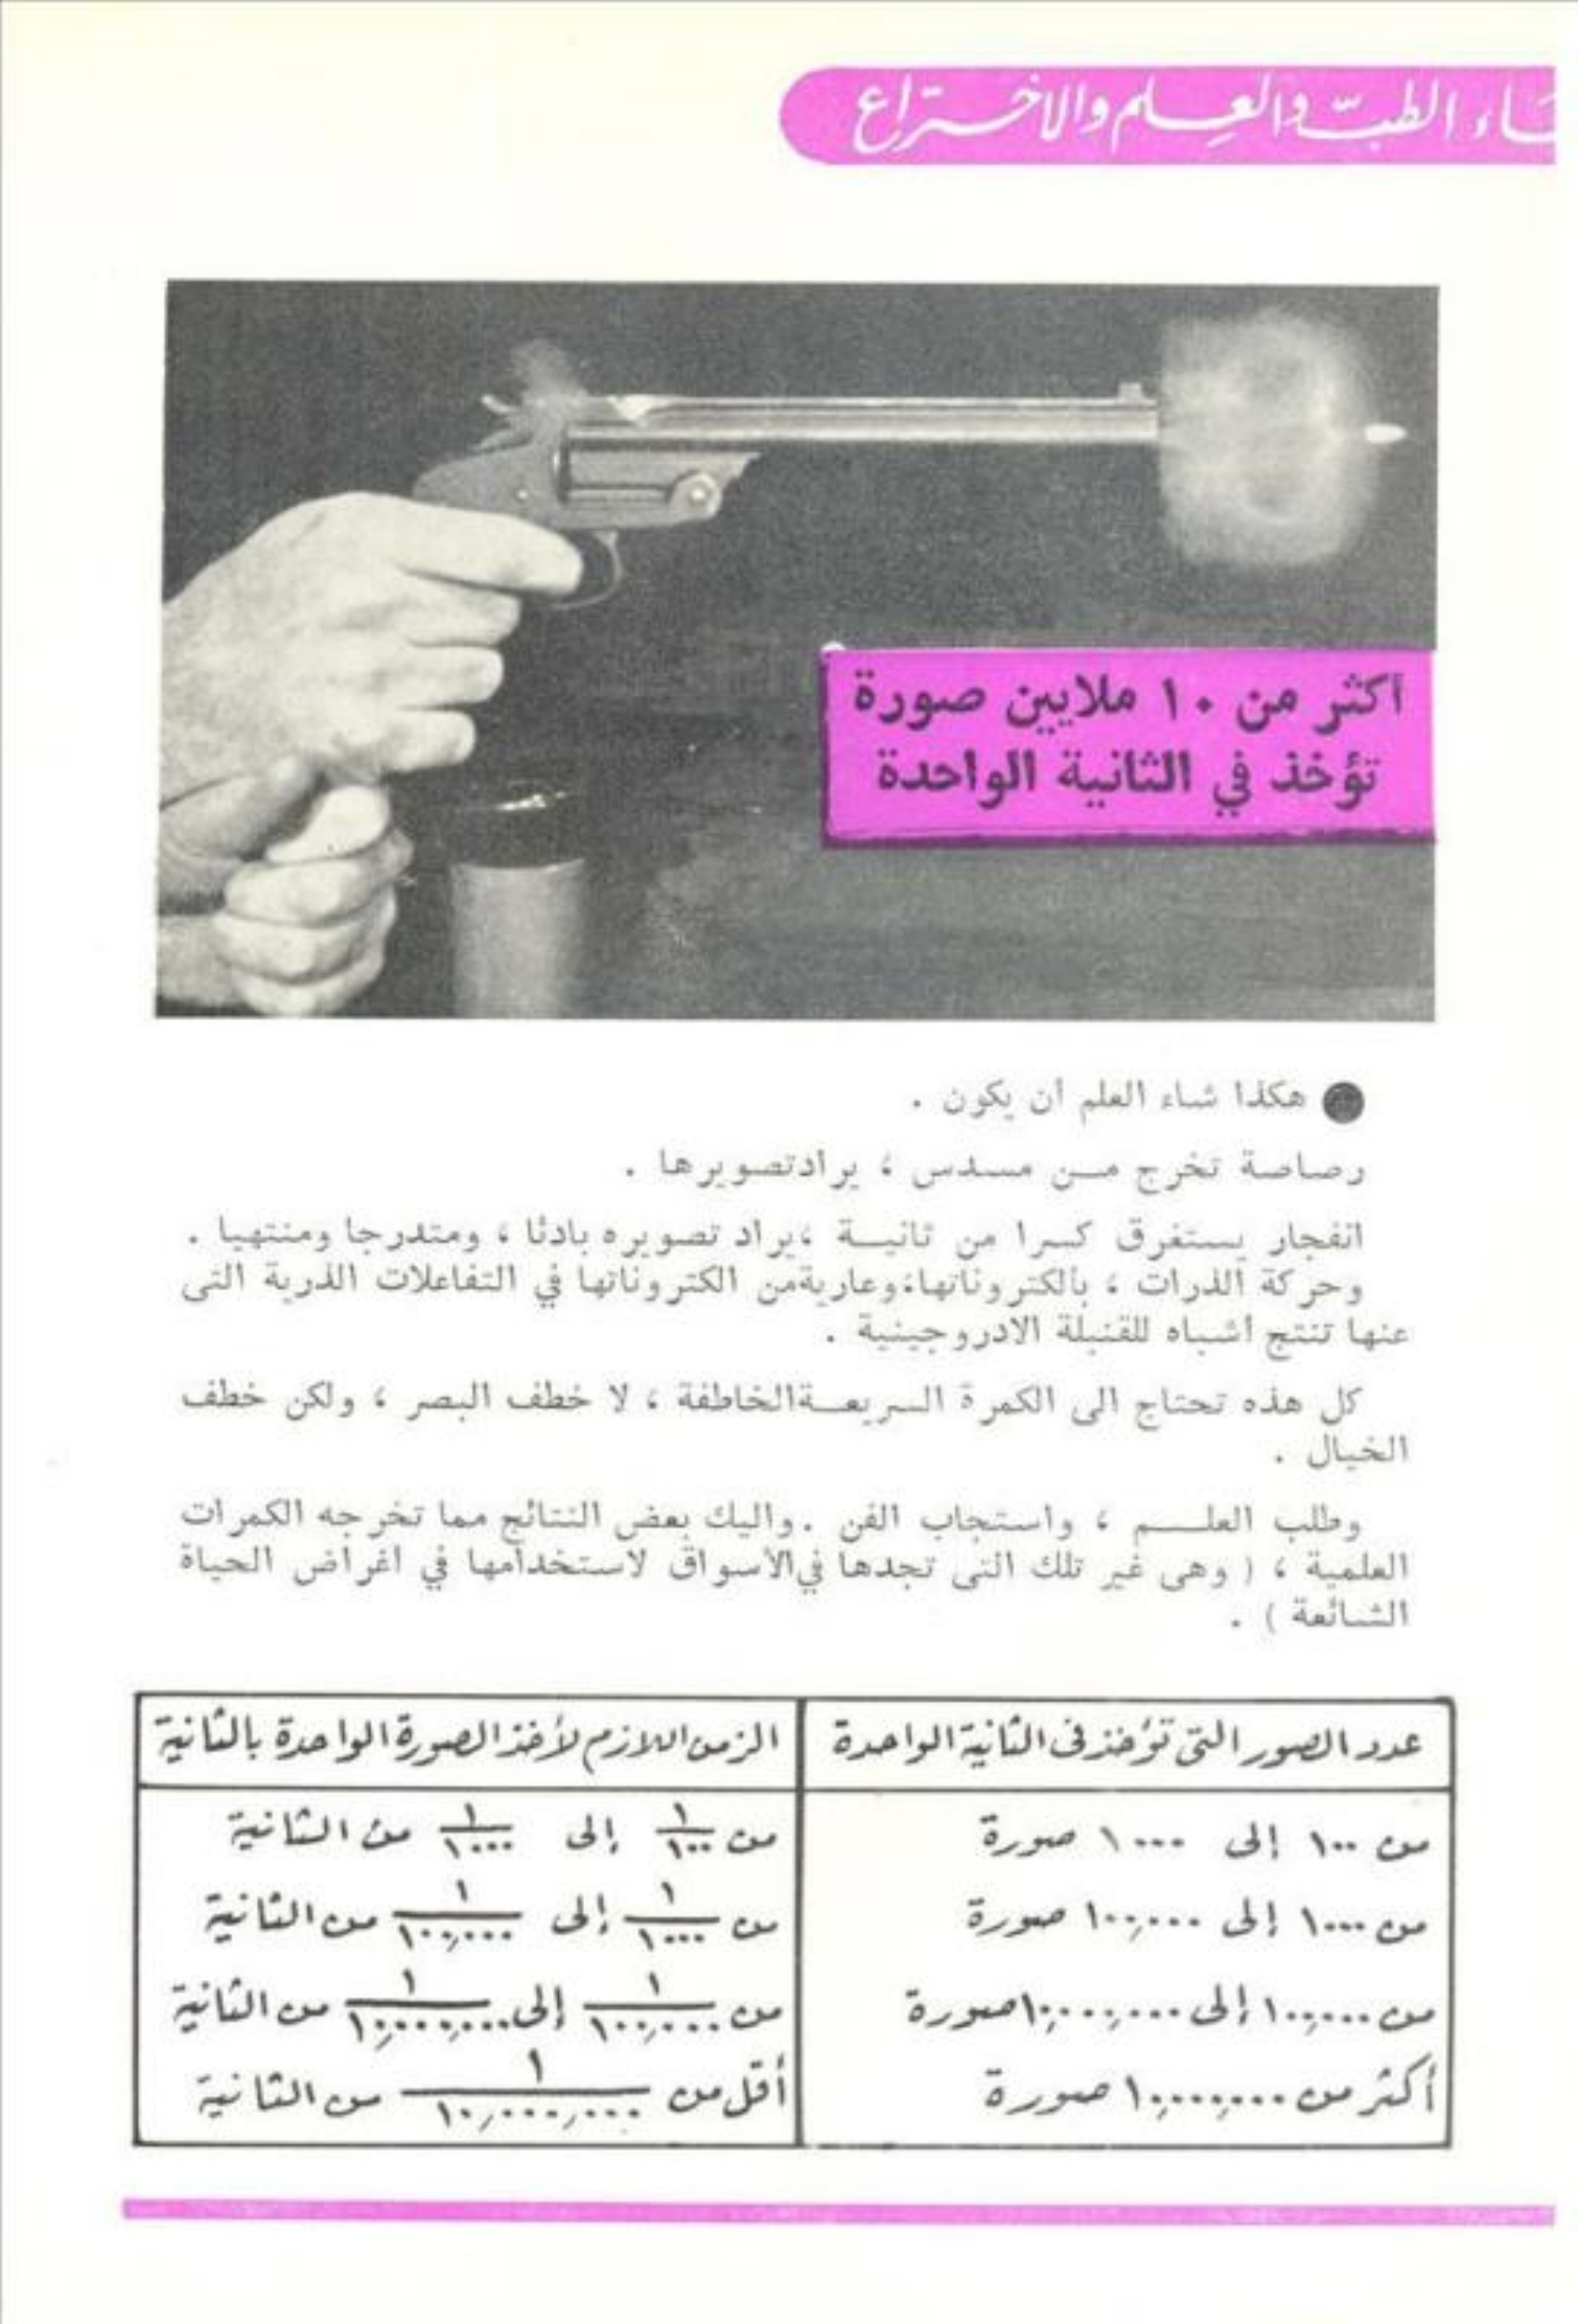 اء الطبّ والعلم والاختراع
اكثر من ١٠ ملايين صورة
تؤخذ في الثانية الواحدة
● هكذا شاء العلم أن يكون .
رصاصة تخرج مــن مسدس ، يرادتصويرها .
انفجار يستغرق كسرا من ثانيــة ،يراد تصويره بادئا ، ومتدرجا ومنتهيا .
وحركة الذرات ، بالكتروناتها،وعاريةمن الكتروناتها في التفاعلات الذرية التى
عنها تنتج أشباه للقنبلة الادروجينية .
كل هذه تحتاج الى الكمرة السريعــةالخاطفة ، لا خطف البصر ، ولكن خطف
الخيال .
وطلب العلــــم ، واستجاب الفن . واليك بعض النتائج مما تخرجه الكمرات
العلمية ، ( وهى غير تلك التى تجدها فيالأسواق لاستخدامها في أغراض الحياة
الشائعة ) .
عدد الصور التى تؤخذ فى الثانية الواحدة الزمن اللازم لأخذ الصورة الواحدة بالثانية
من ١٠٠ إلى ١٠٠٠ صورة من ١/١٠٠ إلى ١/١٠٠٠ من الثانية
من ١٠٠٠ إلى ١٠٠,٠٠٠ صورة من ١/١٠٠٠ إلى ١/١٠٠,٠٠٠ من الثانية
من ١٠٠,٠٠٠ إلى ١٠,٠٠٠,٠٠٠ صورة من ١/١٠٠,٠٠٠ إلى ١/١٠,٠٠٠,٠٠٠ من الثانية
أكثر من ١٠,٠٠٠,٠٠٠ صورة أقل من ١/١٠,٠٠٠,٠٠٠ من الثانية